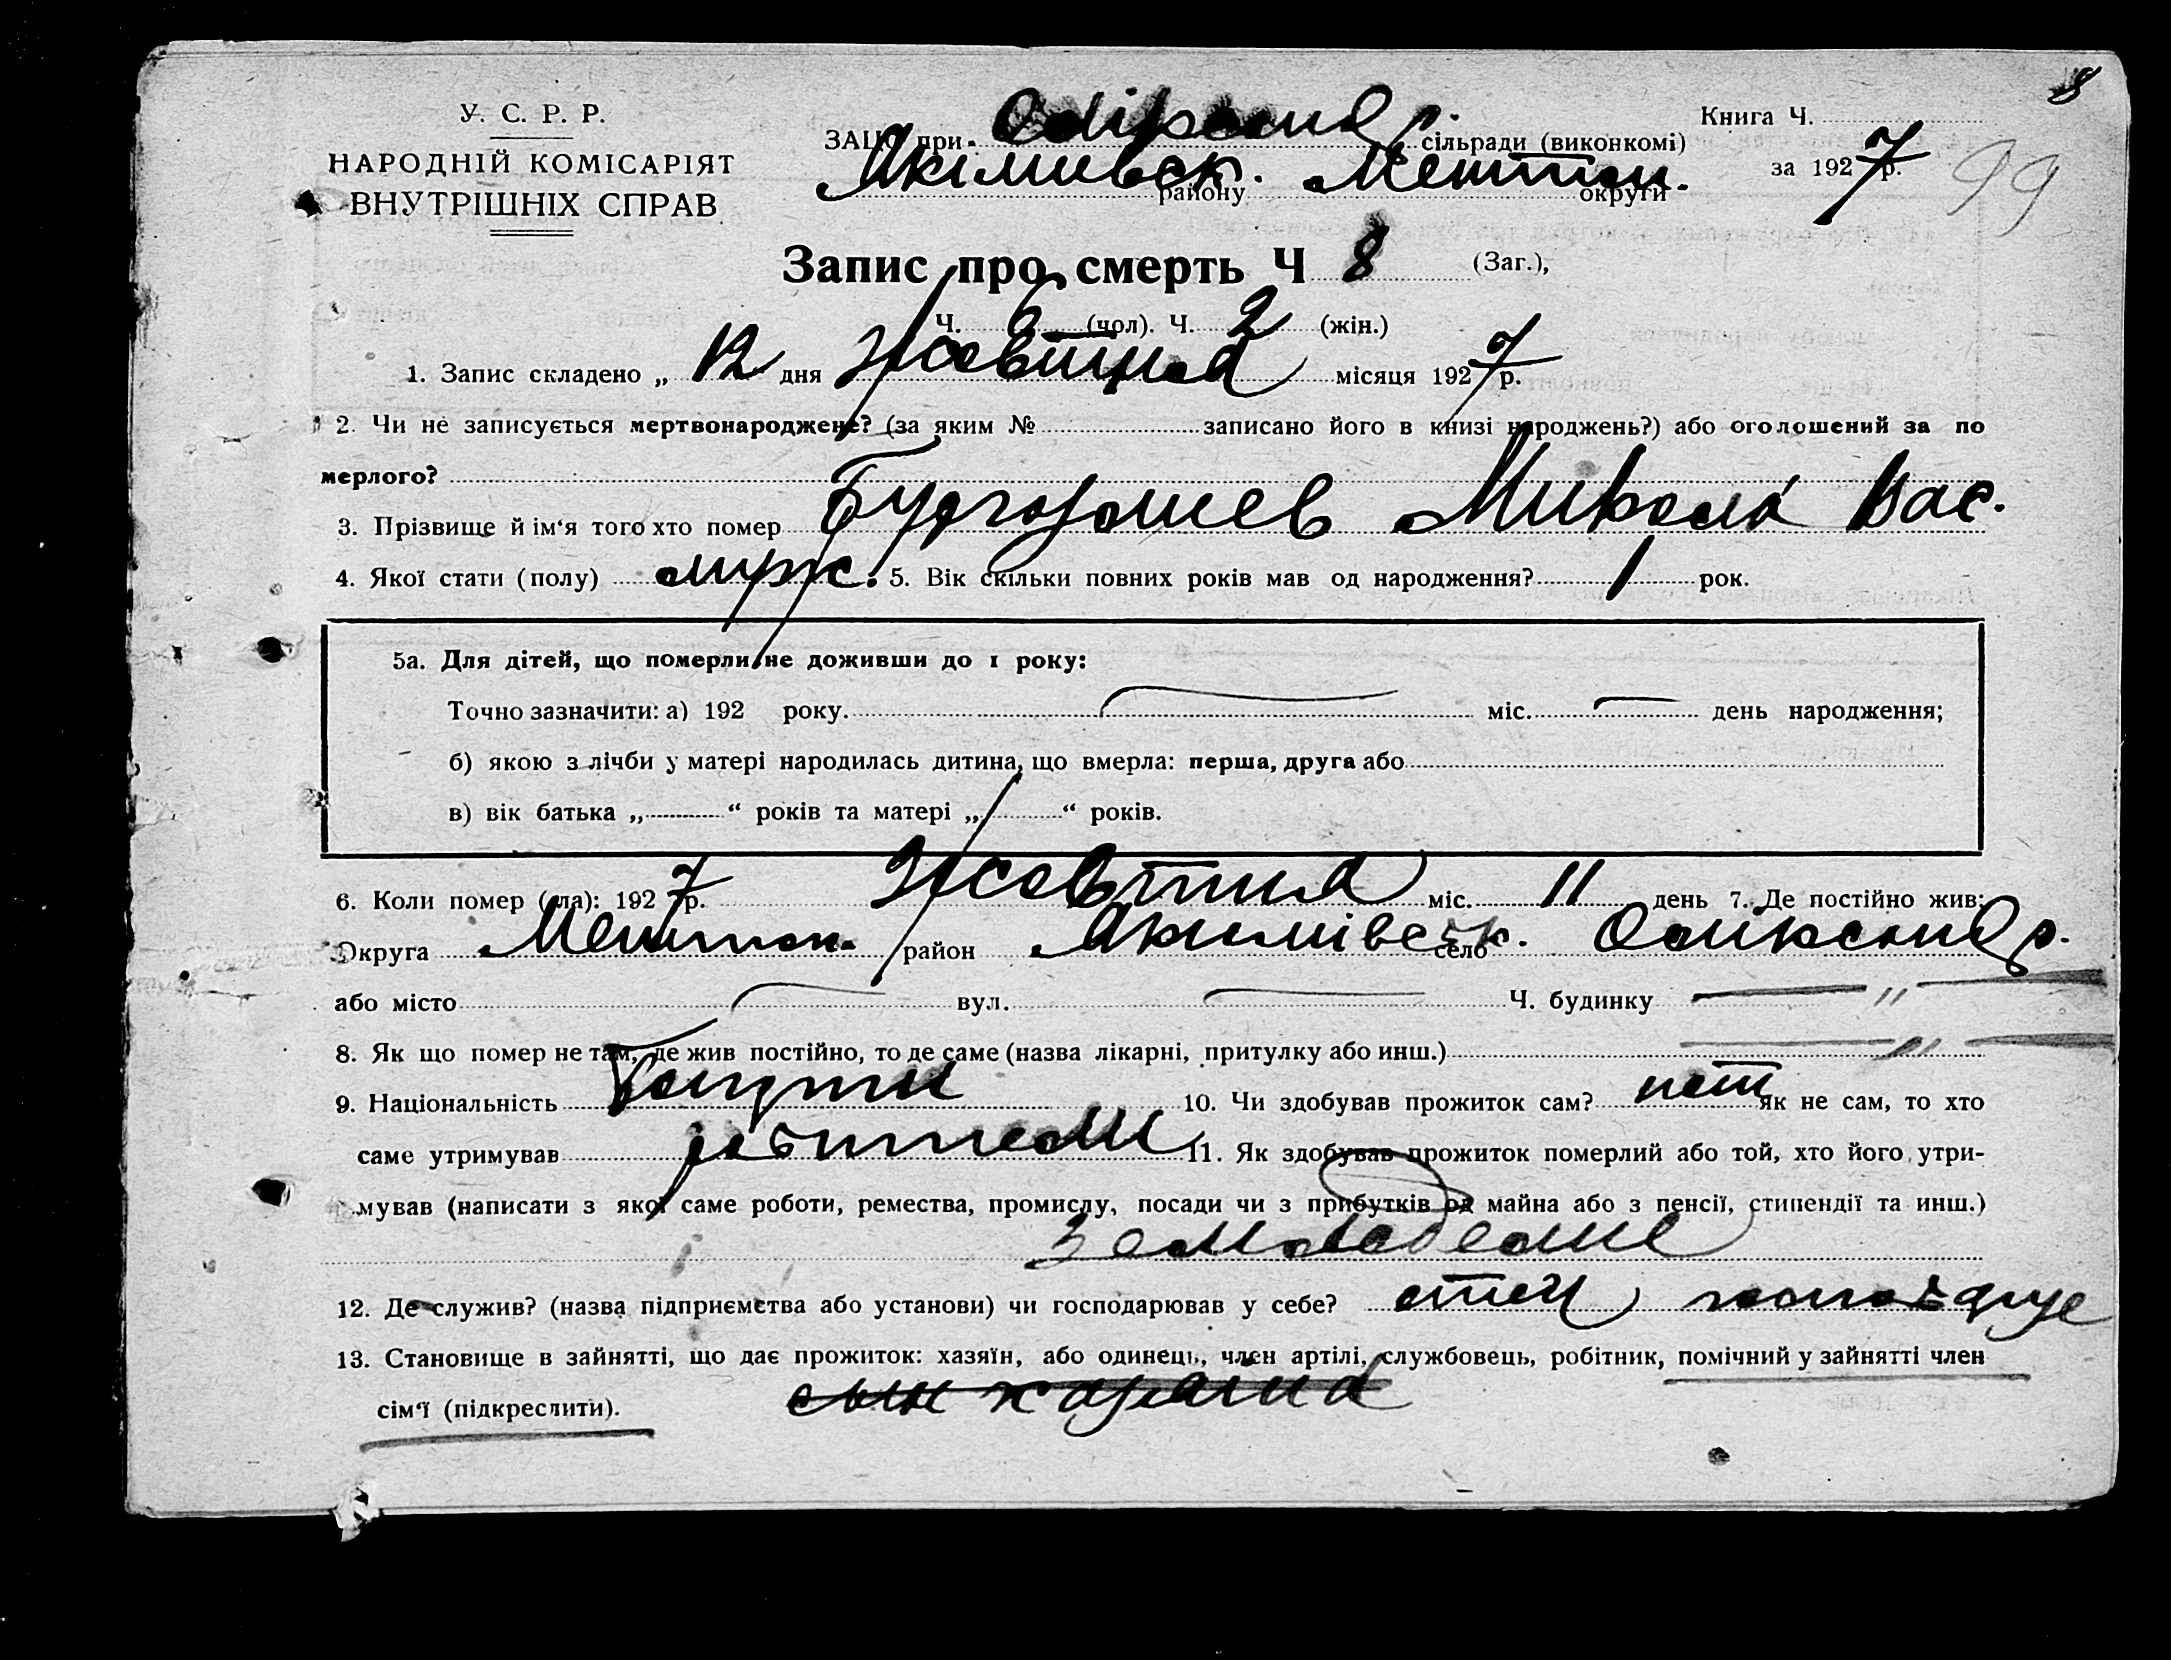 8
У. С. Р. Р.
НАРОДНІЙ КОМІСАРІЯТ
ВНУТРІШНІХ СПРАВ
ЗАЦС при сільради (виконкомі)
Якімивск. району Мелітоп. округи
Книга Ч.
за 1927 р. 99
Запис про смерть Ч 8 (Заг.),
Ч. 6 (чол). Ч. 2 (жін.)
1. Запис складено „ 12 дня Жовтня місяця 1927 р.
2. Чи не записується мертвонароджене? (за яким № записано його в книзі народжень?) або оголошений за по
мерлого?
3. Прізвище й ім‘я того хто помер Микола Вас.
4. Якої стати (полу) муж. 5. Вік скільки повних років мав од народження? 1 рок.
5а. Для дітей, що померли не доживши до 1 року:
Точно зазначити: а) 192 року. міс. день народження;
б) якою з лічби у матері народилась дитина, що вмерла: перша, друга або
в) вік батька „ “ років та матері „ “ років.
6. Коли помер (ла): 1927 р. Жовтня міс. 11 день 7. Де постійно жив:
Округа Мелітоп. район Якимівськ. село
або місто вул. Ч. будинку „
8. Як що помер не там, де жив постійно, то де саме (назва лікарні, притулку або инш.) „
9. Національність 10. Чи здобував прожиток сам? нет Як не сам, то хто
саме утримував 11. Як здобував прожиток померлий або той, хто його утри-
мував (написати з якої саме роботи, ремества, промислу, посади чи з прибутків од майна або з пенсії, стипендії та инш.)
Земледелие
12. Де служив? (назва підприємства або установи) чи господарював у себе? отец
13. Становище в зайнятті, що дає прожиток: хазяїн, або одинець, член артілі, службовець, робітник, помічний у зайнятті член
сім‘ї (підкреслити). сын хазяина